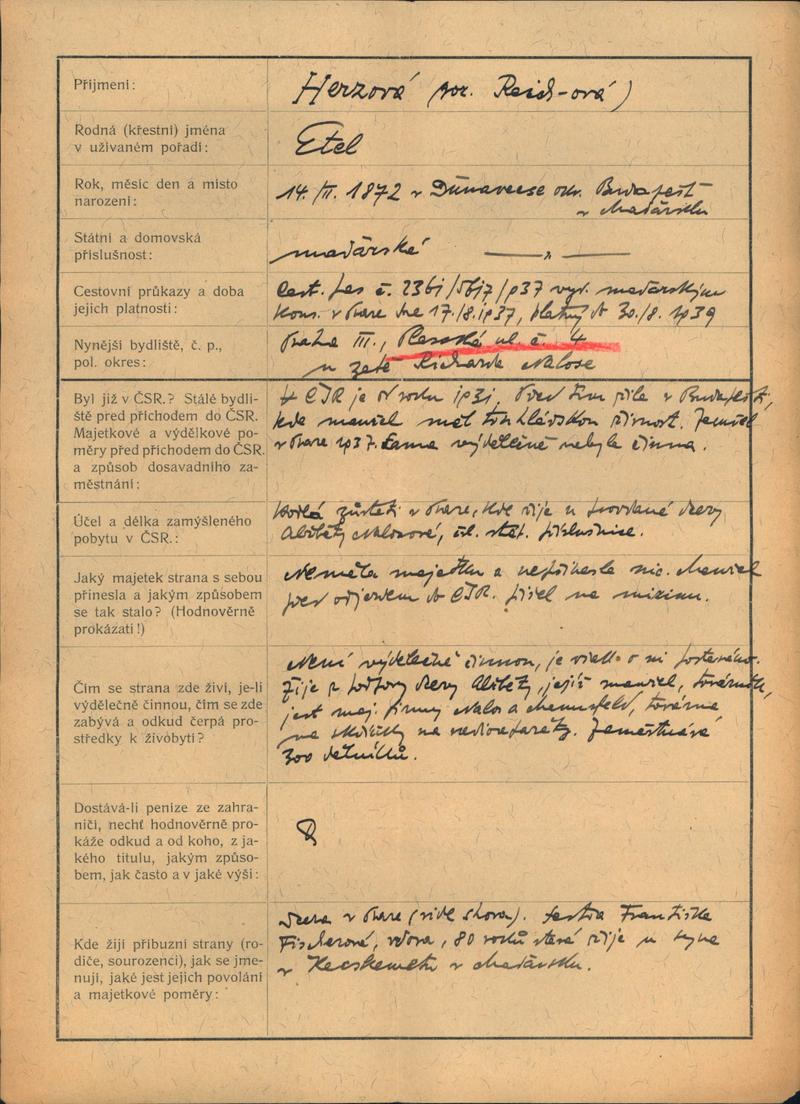 Příjmení:
Herzová (roz. Reich-ová)
Rodná (křestní) jména
v užívaném pořadí:
Etel
Rok, měsíc den a místo
narození:
14./II. 1872 v Dunavecse okr. Budapest
v Maďarsku
Státní a domovská
příslušnost:
maďarské — „ —
Cestovní průkazy a doba
jejich platnosti:
Cest. pas č. vyd. maďarským
kons. v Praze dne 17./8. 1937, platný do 30./8. 1939
Nynější bydliště, č. p.,
pol. okres:
Praha III., ul. č. 4
u zetě Richarda Nalose
Byl již v ČSR.? Stálé bydli-
ště před příchodem do ČSR.
Majetkové a výdělkové po-
měry před příchodem do ČSR.
a způsob dosavadního za-
městnání:
V ČSR je od roku 1931. Před tím žila v Budapešti,
kde manžel měl živnost. Zemřel
v Praze 1937. Sama výdělečně nebyla činna.
Účel a délka zamýšleného
pobytu v ČSR.:
Hodlá zůstati v Praze, kde žije u provdané dcery
Alžběty Nalosové, čsl. stát. příslušnice.
Jaký majetek strana s sebou
přinesla a jakým způsobem
se tak stalo? (Hodnověrně
prokázati!)
Neměla majetku a nepřinesla nic. Manžel
před odjezdem do ČSR. přišel na mizinu.
Čím se strana zde živí, je-li
výdělečně činnou, čím se zde
zabývá a odkud čerpá pro-
středky k živobytí?
Není výdělečně činnou, je však o ni postaráno.
Žije z podpory dcery Alžběty, její manžel, továrník,
jest maj. firmy Nalos a továrna
na na radioaparáty. Zaměstnává
300 dělníků.
Dostává-li peníze ze zahra-
ničí, nechť hodnověrně pro-
káže odkud a od koho, z ja-
kého titulu, jakým způso-
bem, jak často a v jaké výši:
Kde žijí příbuzní strany (ro-
diče, sourozenci), jak se jme-
nují, jaké jest jejich povolání
a majetkové poměry:
Dcera v Praze (vide shora). Sestra Františka
Fischerová, vdova, 80 roků stará žije u syna
v Kecskemétu v Maďarsku.